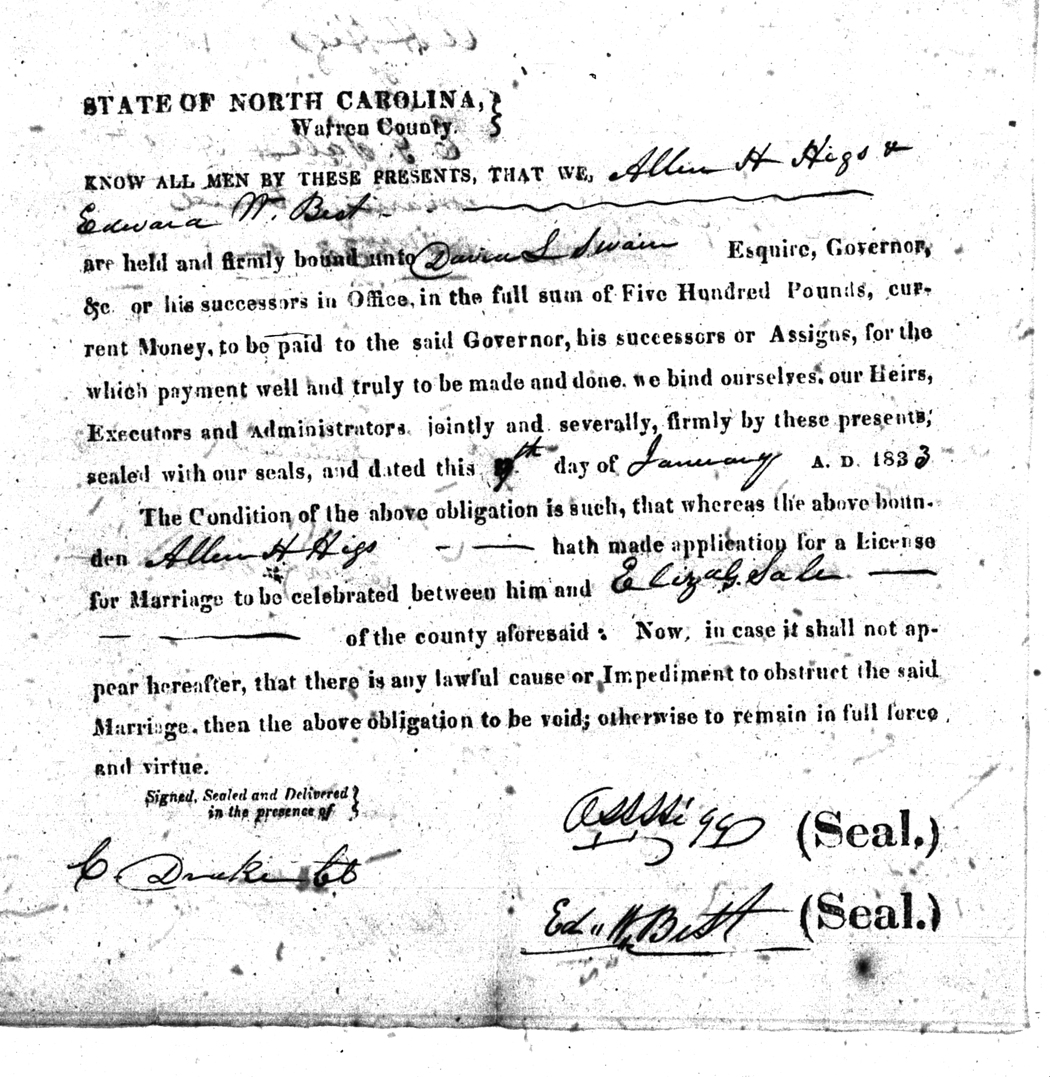 STATE OF NORTH CAROLINA,
Warren County.
KNOW ALL MEN BY THESE PRESENTS, THAT WE, Allen H Higs &
Edward W. Best
are held and firmly bound unto David L Swain Esquire, Governor,
&c. or his successors in Office, in the full sum of Five Hundred Pounds, cur-
rent Money, to be paid to the said Governor, his successors or Assigns, for the
which payment well and truly to be made and done. we bind ourselves, our Heirs,
Executors and Administrators jointly and severally, firmly by these presents,
sealed with our seals, and dated this th day of January A. D. 1833
The Condition of the above obligation is such, that whereas the above boun-
den Allen H. Higs hath made application for a License
for Marriage to be celebrated between him and Eliza G. Sale
of the county aforesaid: Now, in case it shall not ap-
pear hereafter, that there is any lawful cause or Impediment to obstruct the said
Marriage. then the above obligation to be void; otherwise to remain in full force
and virtue.
Signed, Sealed and Delivered
in the presence of
C. Drake
(Seal.)
Ed. W. Best (Seal.)